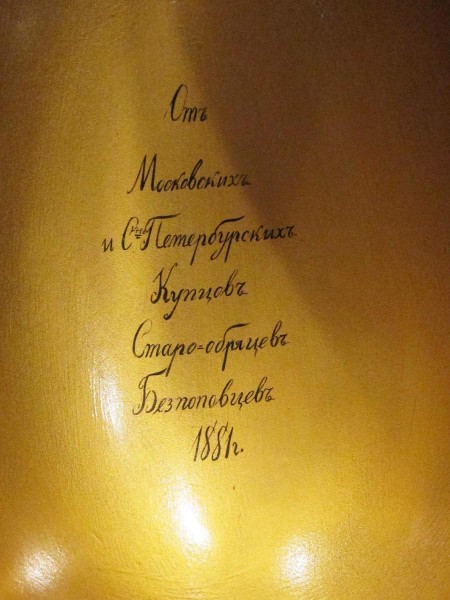 Отъ
Московскихъ
и С.кт=Петербурскихъ
Купцовъ
Старо=обряцевъ
Безпоповцевъ
1881г.